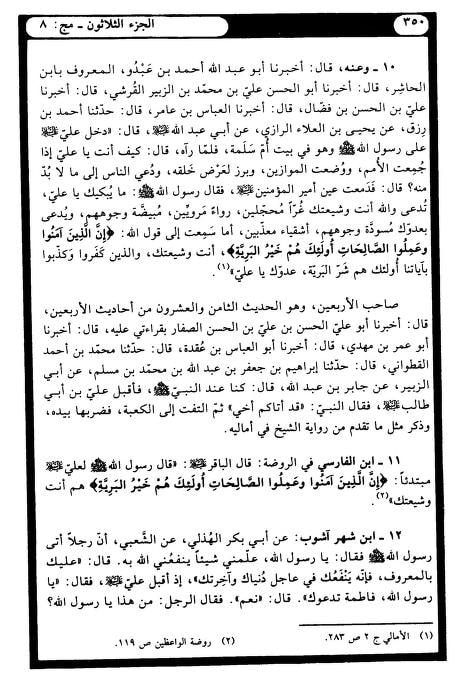 ٣٥٠
الجزء الثلاثون ـ مج: ٨
١٠ ـ وعنه، قال: أخبرنا أبو عبد الله أحمد بن عَبْدُو، المعروف بابن
الحاشِر، قال: أخبرنا أبو الحسن عليّ بن محمّد بن الزبير القُرشي، قال: أخبرنا
عليّ بن الحسن بن فضّال، قال: أخبرنا العباس بن عامر، قال: حدّثنا أحمد بن
رزق، عن يحيى بن العلاء الرازي، عن أبي عبد الله ﷺ، قال: «دخل عليّ ﷺ
على رسول الله ﷺ وهو في بيت أُمّ سَلَمة، فلمّا رآه، قال: كيف أنت يا عليّ إذا
جُمِعت الأُمم، ووُضعت الموازين، وبرز لعَرْض خَلقه، ودُعي الناس إلى ما لا بُدّ
منه؟ قال: فدَمعت عين أمير المؤمنين ﷺ، فقال رسول الله ﷺ: ما يُبكيك يا عليّ،
تُدعى والله أنت وشيعتك غُرّاً مُحجّلين، رواءً مَرويّين، مُبيضّة وجوههم، ويُدعى
بعدوّك مُسودّة وجوههم، أشقياء معذّبين، أما سَمِعت إلى قول الله: ﴿إِنَّ الَّذِينَ آمَنُوا
وعَمِلُوا الصَّالِحَاتِ أُولَئِكَ هُمْ خَيْرُ البَرِيَّةِ﴾، أنت وشيعتك، والذين كَفَروا وَكذّبوا
بآياتنا أولئك هم شَرّ البَريّة، عدوّك يا عليّ»(١).
صاحب الأربعين، وهو الحديث الثامن والعشرون من أحاديث الأربعين،
قال: أخبرنا أبو عليّ الحسن بن عليّ بن الحسن الصفار بقراءتي عليه، قال: أخبرنا
أبو عمر بن مهدي، قال: أخبرنا أبو العباس بن عُقدة، قال: حدّثنا محمّد بن أحمد
القطواني، قال: حدّثنا إبراهيم بن جعفر بن عبد الله بن محمد بن مسلم، عن أبي
الزبير، عن جابر بن عبد الله، قال: كنا عند النبيّ ﷺ، فأقبل عليّ بن أبي
طالب ﷺ، فقال النبيّ: «قد أتاكم أخي» ثمّ التفت إلى الكعبة، فضربها بيده،
وذكر مثل ما تقدم من رواية الشيخ في أماليه.
١١ ـ ابن الفارسي في الروضة: قال الباقر ﷺ: «قال رسول الله ﷺ لعليّ ﷺ
مبتدئاً: ﴿إِنَّ الَّذِينَ آمَنُوا وعَمِلُوا الصَّالِحَاتِ أُولَئِكَ هُمْ خَيْرُ البَرِيَّةِ﴾ هم أنت
وشيعتك»(٢).
١٢ ـ ابن شهر آشوب: عن أبي بكر الهُذلي، عن الشَّعبي، أن رجلاً أتى
رسول الله ﷺ فقال: يا رسول الله، علّمني شيئاً ينفعُني الله به. قال: «عليك
بالمعروف، فإنّه يَنْفَعُك في عاجل دُنياك وآخرتك»، إذ أقبل عليّ ﷺ، فقال: «يا
رسول الله، فاطمة تدعوك». قال: «نعم». فقال الرجل: من هذا يا رسول الله؟
(١) الأمالي ج ٢ ص ٢٨٣.
(٢) روضة الواعظين ص ١١٩.